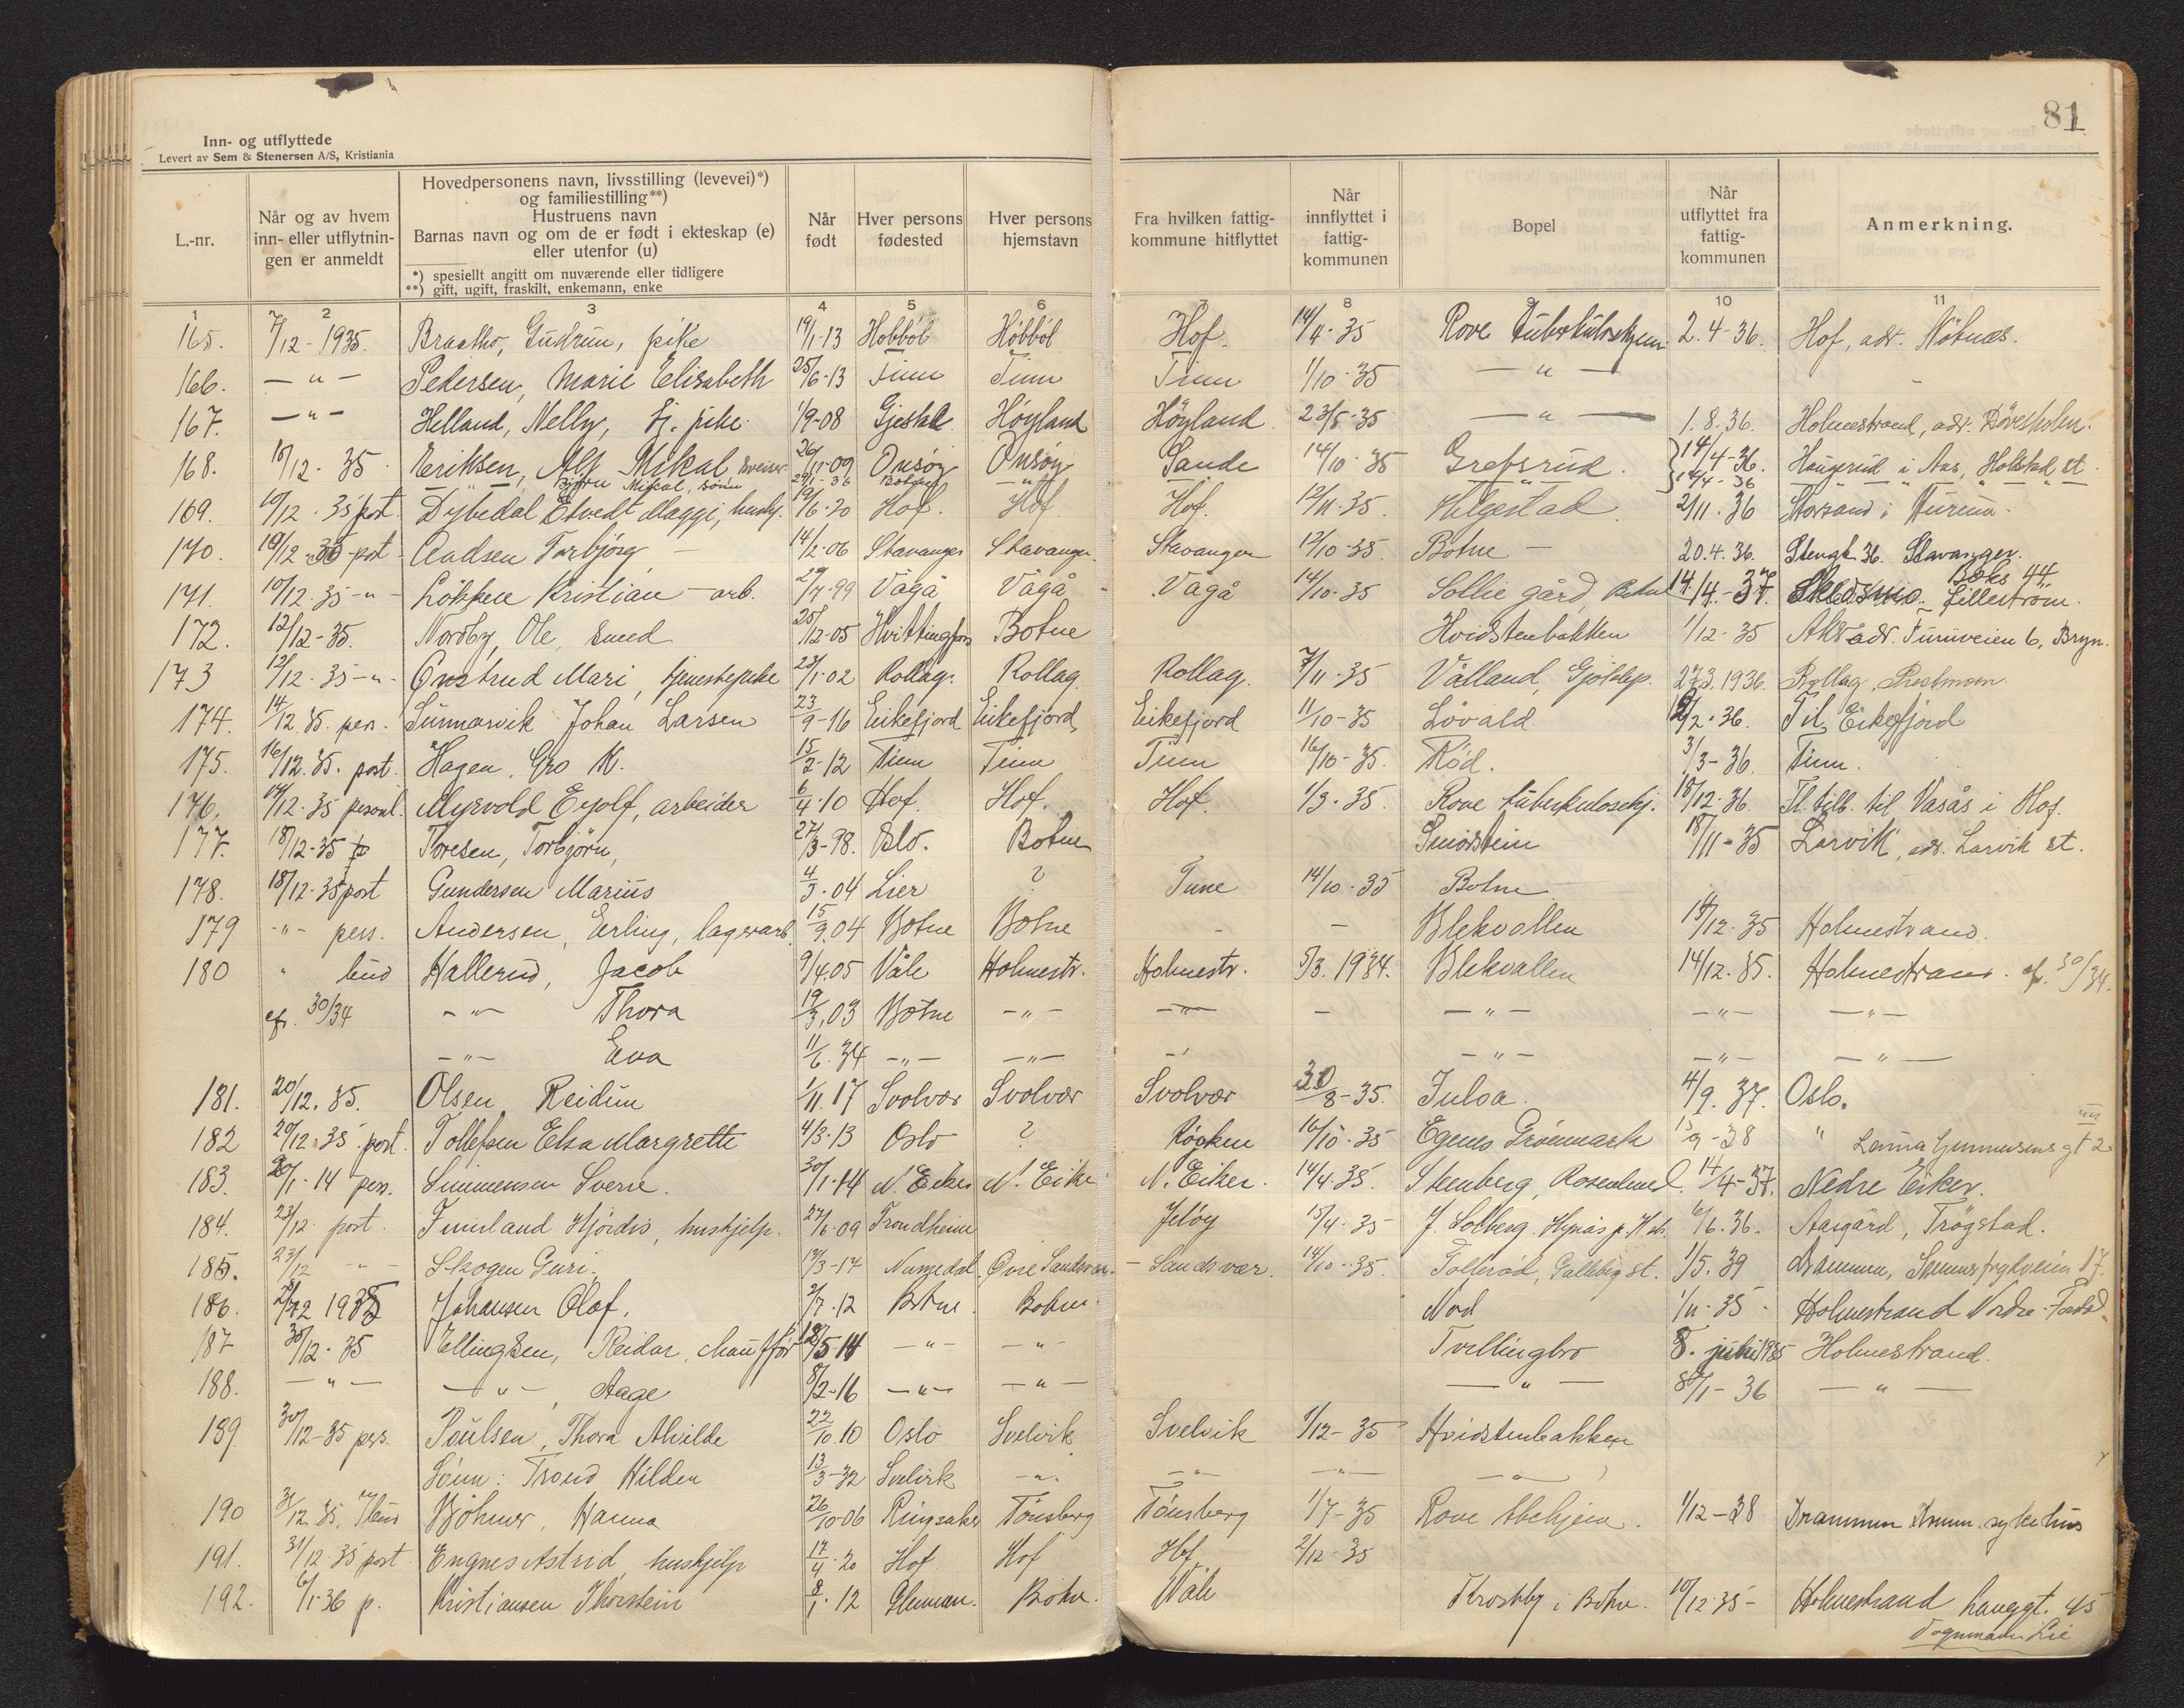 81
Inn- og utflyttede
Levert av Sem & Stenersen A/S, Kristiania
L.-nr.
Når og av hvem inn- eller utflytnin-gen er anmeldt
Hovedpersonens navn, livsstilling (levevei)*)
og familiestilling**)
Hustruens navn
Barnas navn og om de er født i ekteskap (e)
eller utenfor (u)
*) spesiellt angitt om nuværende eller tidligere
**) gift, ugift, fraskilt, enkemann, enke
Når født
Hver persons fødested
Hver persons hjemstavn
Fra hvilken fattig-kommune hitflyttet
Når innflyttet i fattig-kommunen
Bopel
Når utflyttet fra fattig-kommunen
Anmerkning.
1 2 3 4 5 6 7 8 9 10 11
165. 7/12-1935. Gudrun, pike 19/1-13 Hobböl Hobböl Hof. 14/11-35 Rove 2.4-36. Hof, adr.
166. —"— Pedersen, Marie Elisabeth 25/6-13 Tinn Tinn Tinn 1/10-35 —"—
167. —"— Helland, Nelly, tj. pike 1/9-08 Gjestal Höyland Höyland 23/5-35 —"— 1.8.36. Holmestrand, adr.
168. 35 Eriksen, Alf Mikal, sveiser 26/11-09 Onsöy Onsöy Sande 14/10-35 Grefsrud. 14/4-36. Haugerud i Aas, Holstad st
Björn Mikal, sönn 14/4-36
169. 10/12-35 post. Dybedal Etvedt Maggi, 19/6-20 Hof. Hof Hof. 12/11-35. Helgestad 2/11-36 Storsand i Hurum.
170. 19/12-35-post Aadsen Torbjörg 14/2-06 Stavanger Stavanger. Stavanger 12/10-35. Botne 20.4.36. 36. Stavanger.
171. 10/12-35-"- Løkken Kristian - arb. 29/7-99 Vågå Vågå Vågå 14/10-35 Sollie gård, 14/4-37. Boks 44 Lilleström.
172. 12/12-35. Nordby, Ole, smed 25/12-05 Hvittingfoss Botne Hvidstenbakken 1/12-35 Aker adr. Furuveien 6, Bryn.
173 12/12-35-"- Mari, tjenestepike 23/1-02 Rollag. Rollag. Rollag. 7/11-35 Vålland, 27.3.1936. Rollag,
174. 14/12.35. pers. Sunnarvik Johan Larsen 23/9-16 Eikefjord Eikefjord Eikefjord 11/10-35 Lövald 2-36. Til Eikefjord
175. 16/12.35. post. Hagen, Gro K. 15/2-12 Tinn Tinn Tinn 16/10-35. Röd. 3/3-36. Tinn.
176. 17/12-35 personl. Myrvold Eyolf, arbeider 6/4-10 Hof. Hof. Hof. 1/3-35. Rove tuberkulosehj. 18/12-36. Fl. tilb. til Vasås i Hof.
177. 18/12-35 p Toresen, Torbjörn, 27/3-98. Oslo. Botne Smörstein 18/11-35 Larvik, adr. Larvik st.
178. 18/12-35 post Gundersen Marius 4/3-04 Lier ? Tune 14/10-35 Botne
179 -"- pers. Andersen, Erling, lagerarb. 15/9.04 Botne Botne - - Blekvollen 14/12-35 Holmestrand.
180 " bud Hallerud, Jacob 9/4.05 Våle Holmestr. Holmestr. 5/3.1934. Blekvallen 14/12.35. Holmestrand. cf. 30/34.
cf. 30/34 -"- Thora 19/3.03 Botne -"- -"- - -"- -"- -"-
-"- Eva 11/6.34 -"- -"- -"- -"- -"- -"-
181. 20/12.35. Olsen Reidun 1/11.17 Svolvær Svolvær Svolvær 30/8-35. Juloa. 4/9.37. Oslo.
182 20/12-35 post. Tollefsen Elsa Margrette 4/3-13 Oslo ? Røyken 16/10-35 Egenes 9-38 " gt 2
183. 20/1-14 pers. Simmensen Sverre. 30/1-14 N. Eiker N. Eiker N. Eiker. 14/4-35. Stenberg, 14/4-37. Nedre Eiker.
184. 23/12 post. Hjördis, huskjelp. 27/6-09 Trondheim Jelöy 15/4-35 J. Solberg. 6/6.36. Aasgård, Trögstad.
185. 23/12 -"- Skogen Guri. 17/3-17 Numedal Övre Sandsvær Sandsvær. 14/10-35. Tollerød, Galleberg st. 1/5.39 Drammen, 17.
186. 1935 Johansen Olaf. 2/7-12 Botne. Botne. Nord 1/11-35. Holmestrand Nordre
187 30/12-35 Ellingsen, Reidar, chauffør 5-14 -"- -"- Tvillingbro 8. juli 1935 Holmestrand.
188. -"- -"-, Aage 8/2-16 -"- -"- -"- 8/1-36 -"-
189 30/12-35 pers. Poulsen, Thora Alvilde 22/10.10 Oslo Svelvik Svelvik 1/12-35 Hvidstenbakken
Sönn: Trond Hilden 13/3-32 Svelvik -"- -"- -"- -"-
190 31/12.35. Böhmer, Hanna 26/10-06 Ringsaker Tönsberg Tönsberg 1/7-35 Rove tbchjem. 1/12-38 Drammen Dramm. sykehus
191. 31/12 35 post Engnes Astrid, huskjelp 17/4-20 Hof Hof Hof 2/12-35
192. 6/1-36 p. Kristiansen Thorstein 8/1-12 Botne. Våle i Botne. 10/12-35- Holmestrand Langgt. 45
Lie